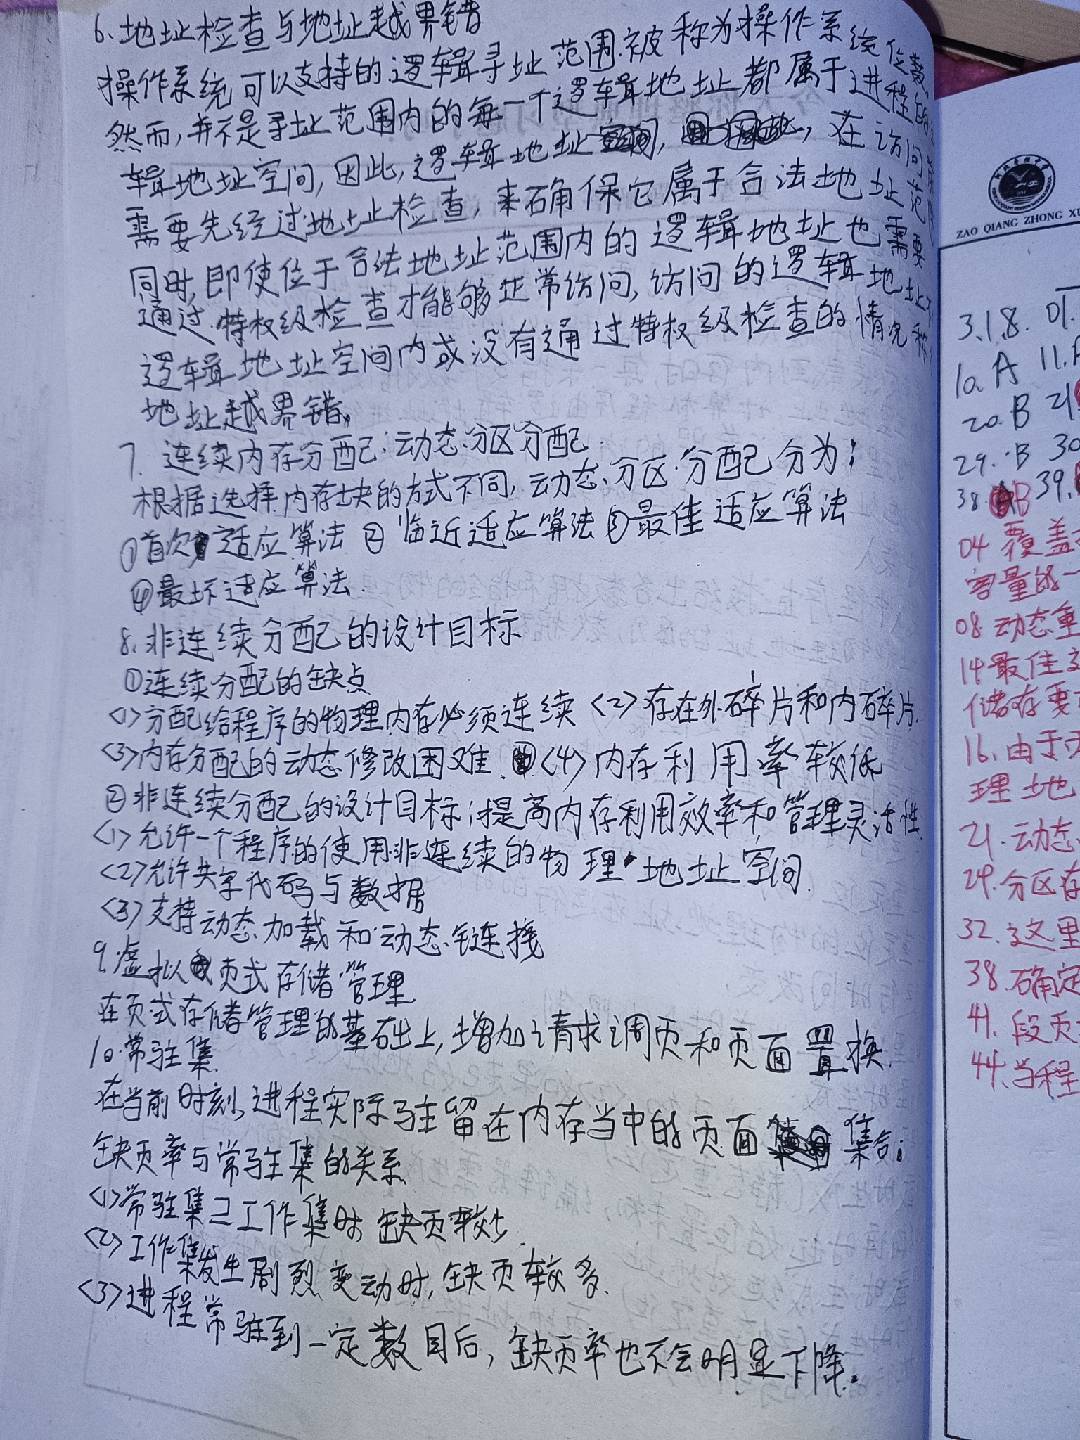 6.地址检查与地址越界错
操作系统可以支持的逻辑寻址范围被称为操作系统位数,
然而,并不是寻址范围内的每一个逻辑地址都属于进程的逻
辑地址空间,因此,逻辑地址,在访问
需要先经过地址检查,来确保它属于合法地址范
同时,即使位于合法地址范围内的逻辑地址也需要
通过特权级检查才能够正常访问,访问的逻辑地址不
逻辑地址空间内或没有通过特权级检查的情况称
地址越界错。
7.连续内存分配:动态分区分配
根据选择内存块的方式不同,动态分区分配分为:
①首次适应算法 ②临近适应算法 ③最佳适应算法
④最坏适应算法
8.非连续分配的设计目标
①连续分配的缺点
<1>分配给程序的物理内存必须连续 <2>存在外碎片和内碎片.
<3>内存分配的动态修改困难. <4>内存利用率较低
②非连续分配的设计目标:提高内存利用效率和管理灵活性.
<1>允许一个程序的使用非连续的物理地址空间.
<2>允许共享代码与数据
<3>支持动态加载和动态链接
9.虚拟页式存储管理
在页式存储管理的基础上,增加请求调页和页面置换.
10.常驻集
在当前时刻,进程实际驻留在内存当中的页面集合;
缺页率与常驻集的关系
<1>常驻集⊇工作集时,缺页较少.
<2>工作集发生剧烈变动时,缺页较多.
<3>进程常驻到一定数目后,缺页率也不会明显下降.
ZAO QIANG ZHONG XU
3.1.8. 01
10. A 11.
20. B 21
29. B 30
38 B 39.
04 覆盖
容量的一
08 动态重
14 最佳
储存要
16.由于
理地
21.动态
29.分区存
32.这里
38.确定
41.段页
44.当程